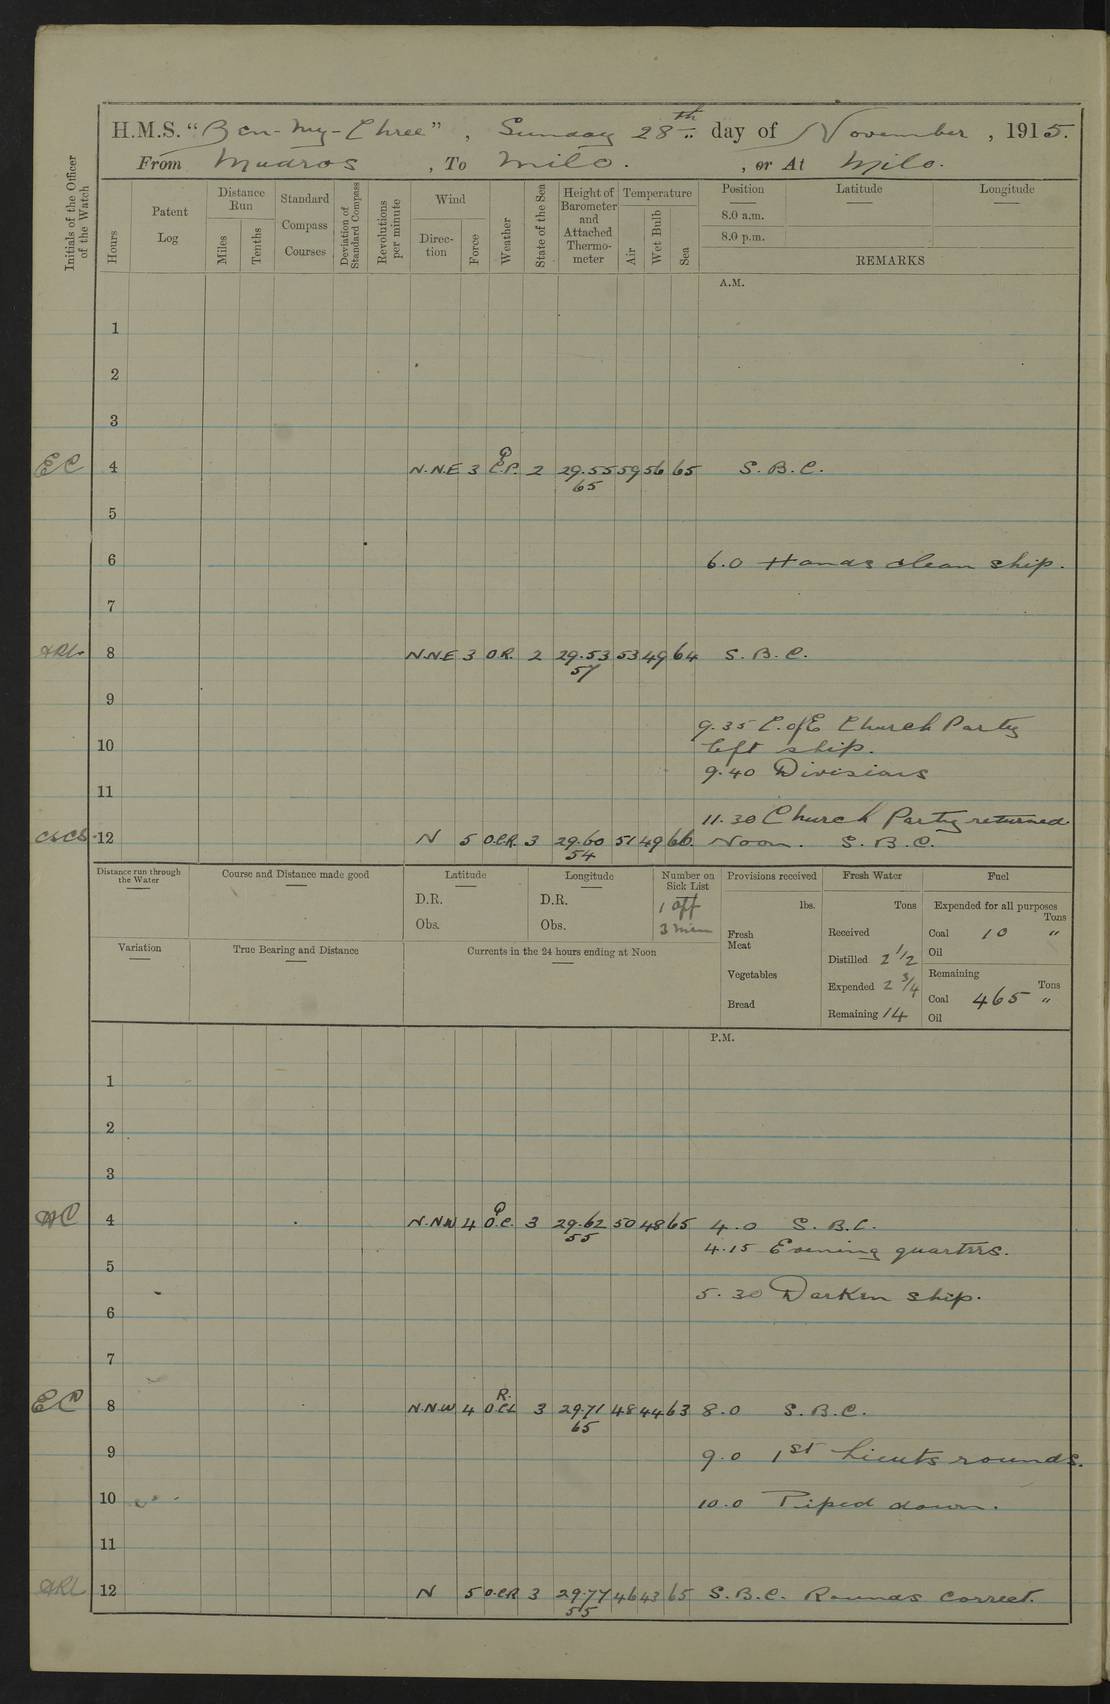 H.M.S. "Ben-My-Chree", Sunday 28th day of November, 1915.
From Mudros, To Milo., or At Milo.
Initials of the Officer of the Watch
Hours
Patent Log
Distance Run
Miles
Tenths
Standard Compass Courses
Deviation of Standard Compass
Revolutions per minute
Wind
Direction
Force
Weather
State of the Sea
Height of Barometer and Attached Thermometer
Temperature
Air
Wet Bulb
Sea
Position Latitude Longitude
8.0 a.m.
8.0 p.m.
REMARKS
A.M.
1
2
3
EC 4 N.N.E 3 2 29.55 59 56 65 S.B.C.
65
5
6 6.0 Hands clean ship.
7
ARL 8 N.N.E 3 O.R. 2 29.53 53 49 64 S.B.C.
57
9
9.35 C. of E Church Party
10 left ship.
9.40 Divisions
11
11.30 Church Party returned
12 N 5 O.C.R. 3 29.60 51 49 66 Noon. S.B.C.
54
Distance run through the Water
Course and Distance made good
Latitude
D.R.
Obs.
Longitude
D.R.
Obs.
Number on Sick List
1 off
3 men
Provisions received
lbs.
Fresh Meat
Vegetables
Bread
Fresh Water
Tons
Received
Distilled 2 1/2
Expended 2 3/4
Remaining 14
Fuel
Expended for all purposes
Tons
Coal 10 "
Oil
Remaining
Tons
Coal 465 "
Oil
Variation
True Bearing and Distance
Currents in the 24 hours ending at Noon
P.M.
1
2
3
4 N.NW 4 Q O.C. 3 29.62 50 48 65 4.0 S.B.C.
55
4.15 Evening quarters.
5
5.30 Darken ship.
6
7
EC 8 N.N.W 4 R. 3 29.71 48 44 63 8.0 S.B.C.
65
9 9.0 1st Lieuts rounds.
10 10.0 Piped down.
11
ARL 12 N 5 O.C.R 3 29.77 46 43 65 S.B.C. Rounds correct.
55